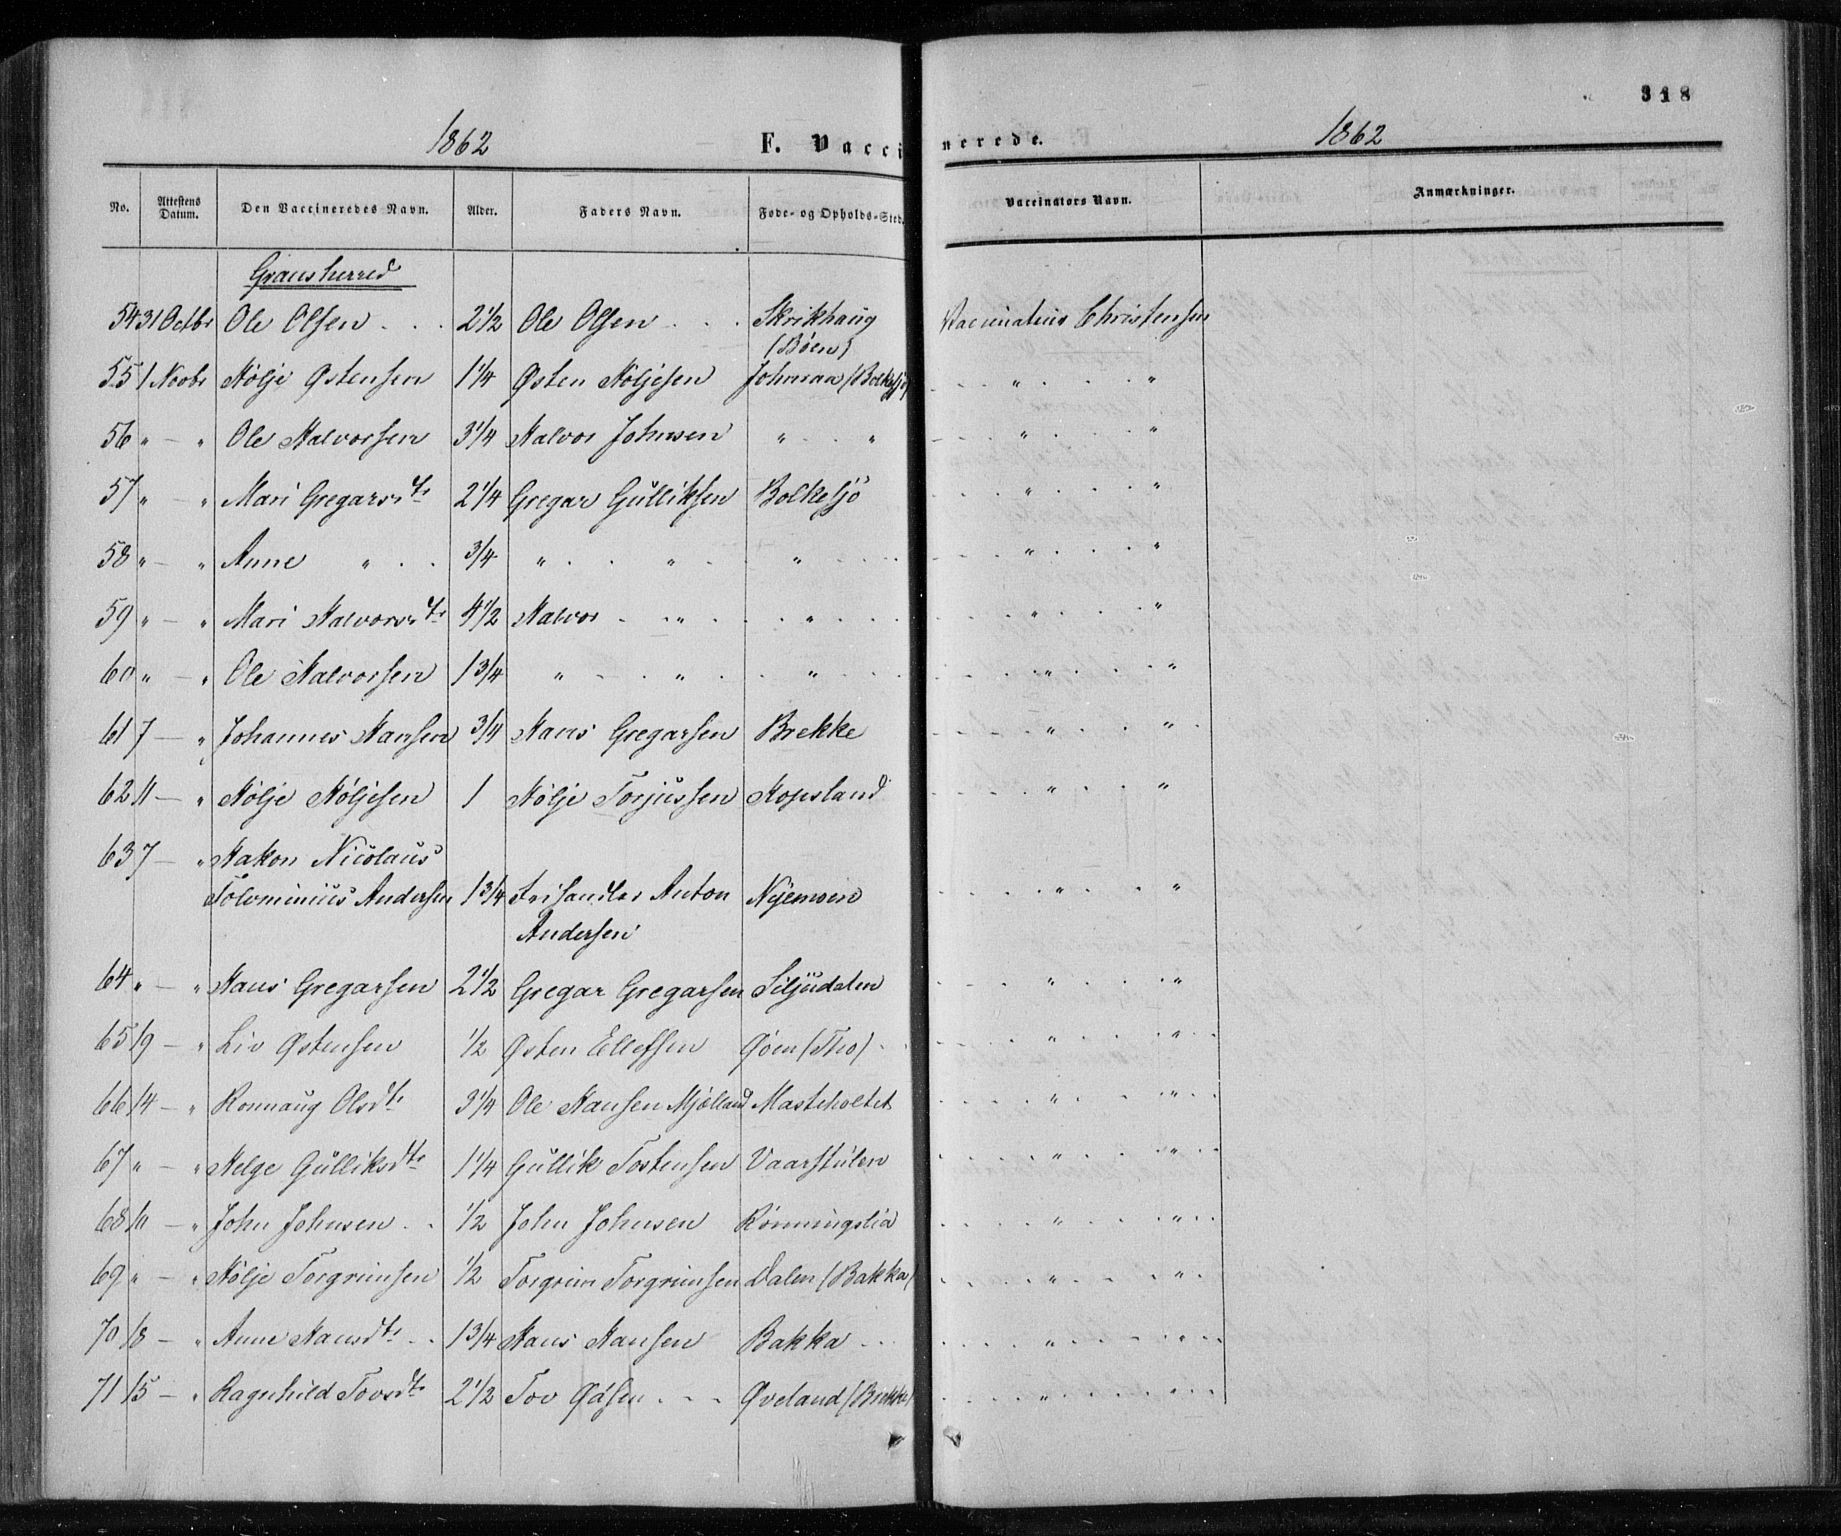 318
1862 F. Vaccinerede. 1862
No. Attestens Datum. Den Vaccineredes Navn. Alder. Faders Navn. Føde- og Opholds-Sted. Vaccinators Navn. Anmærkninger.
Gransherred
54 31 Octbr Ole Olsen . . . 2 1/2 Ole Olsen . . . Skrikhaug Vaccinateur Christensen
(Bøen)
55 1 Novbr Hølje Østensen 1 1/4 Østen Høljesen Johnsaa (Bolkesjø) " "
56 " — " Ole Halvorsen 3 1/4 Halvor Johnsen " " " "
57 " — " Mari Gregarsdtr 2 1/4 Gregar Gulliksen Bolkesjø " "
58 " — " Anne " . . 3/4 " " " " "
59 " — " Mari Halvorsdtr 4 1/2 Halvor " " " "
60 " — " Ole Halvorsen 1 3/4 " " " " "
61 7 — " Johannes Hansen 3/4 Hans Gregarsen Brekke " "
62 11 — " Hølje Høljesen 1 Hølje Torjussen Kopsland " "
63 7 — " Hakon Nicolaus
Tolominius Andersen 1 3/4 Frihandler Anton Nyemoen " "
Andersen
64 " — " Hans Gregarsen 2 1/2 Gregar Gregarsen Siljudalen " "
65 19 — " Liv Østensen 1/2 Østen Ellefsen Øøen (Tho) " "
66 14 — " Ronnaug Olsdtr 3 1/4 Ole Hansen Mjølland Masteholtet " "
67 " — " Helge Gulliksdtr 1 1/4 Gullik Tostensen Vaarstulen " "
68 10 — " John Johnsen . . 1/2 John Johnsen Rønningslia " "
69 " — " Hølje Torgrimsen 1/2 Torgrim Torgrimsen Dalen (Bakka) " "
70 18 — " Anne Hansdtr . . 1 3/4 Hans Hansen Bakka " "
71 15 — " Ragnhild Tovsdtr 2 1/2 Tov . . . Øveland (Brekke) " "